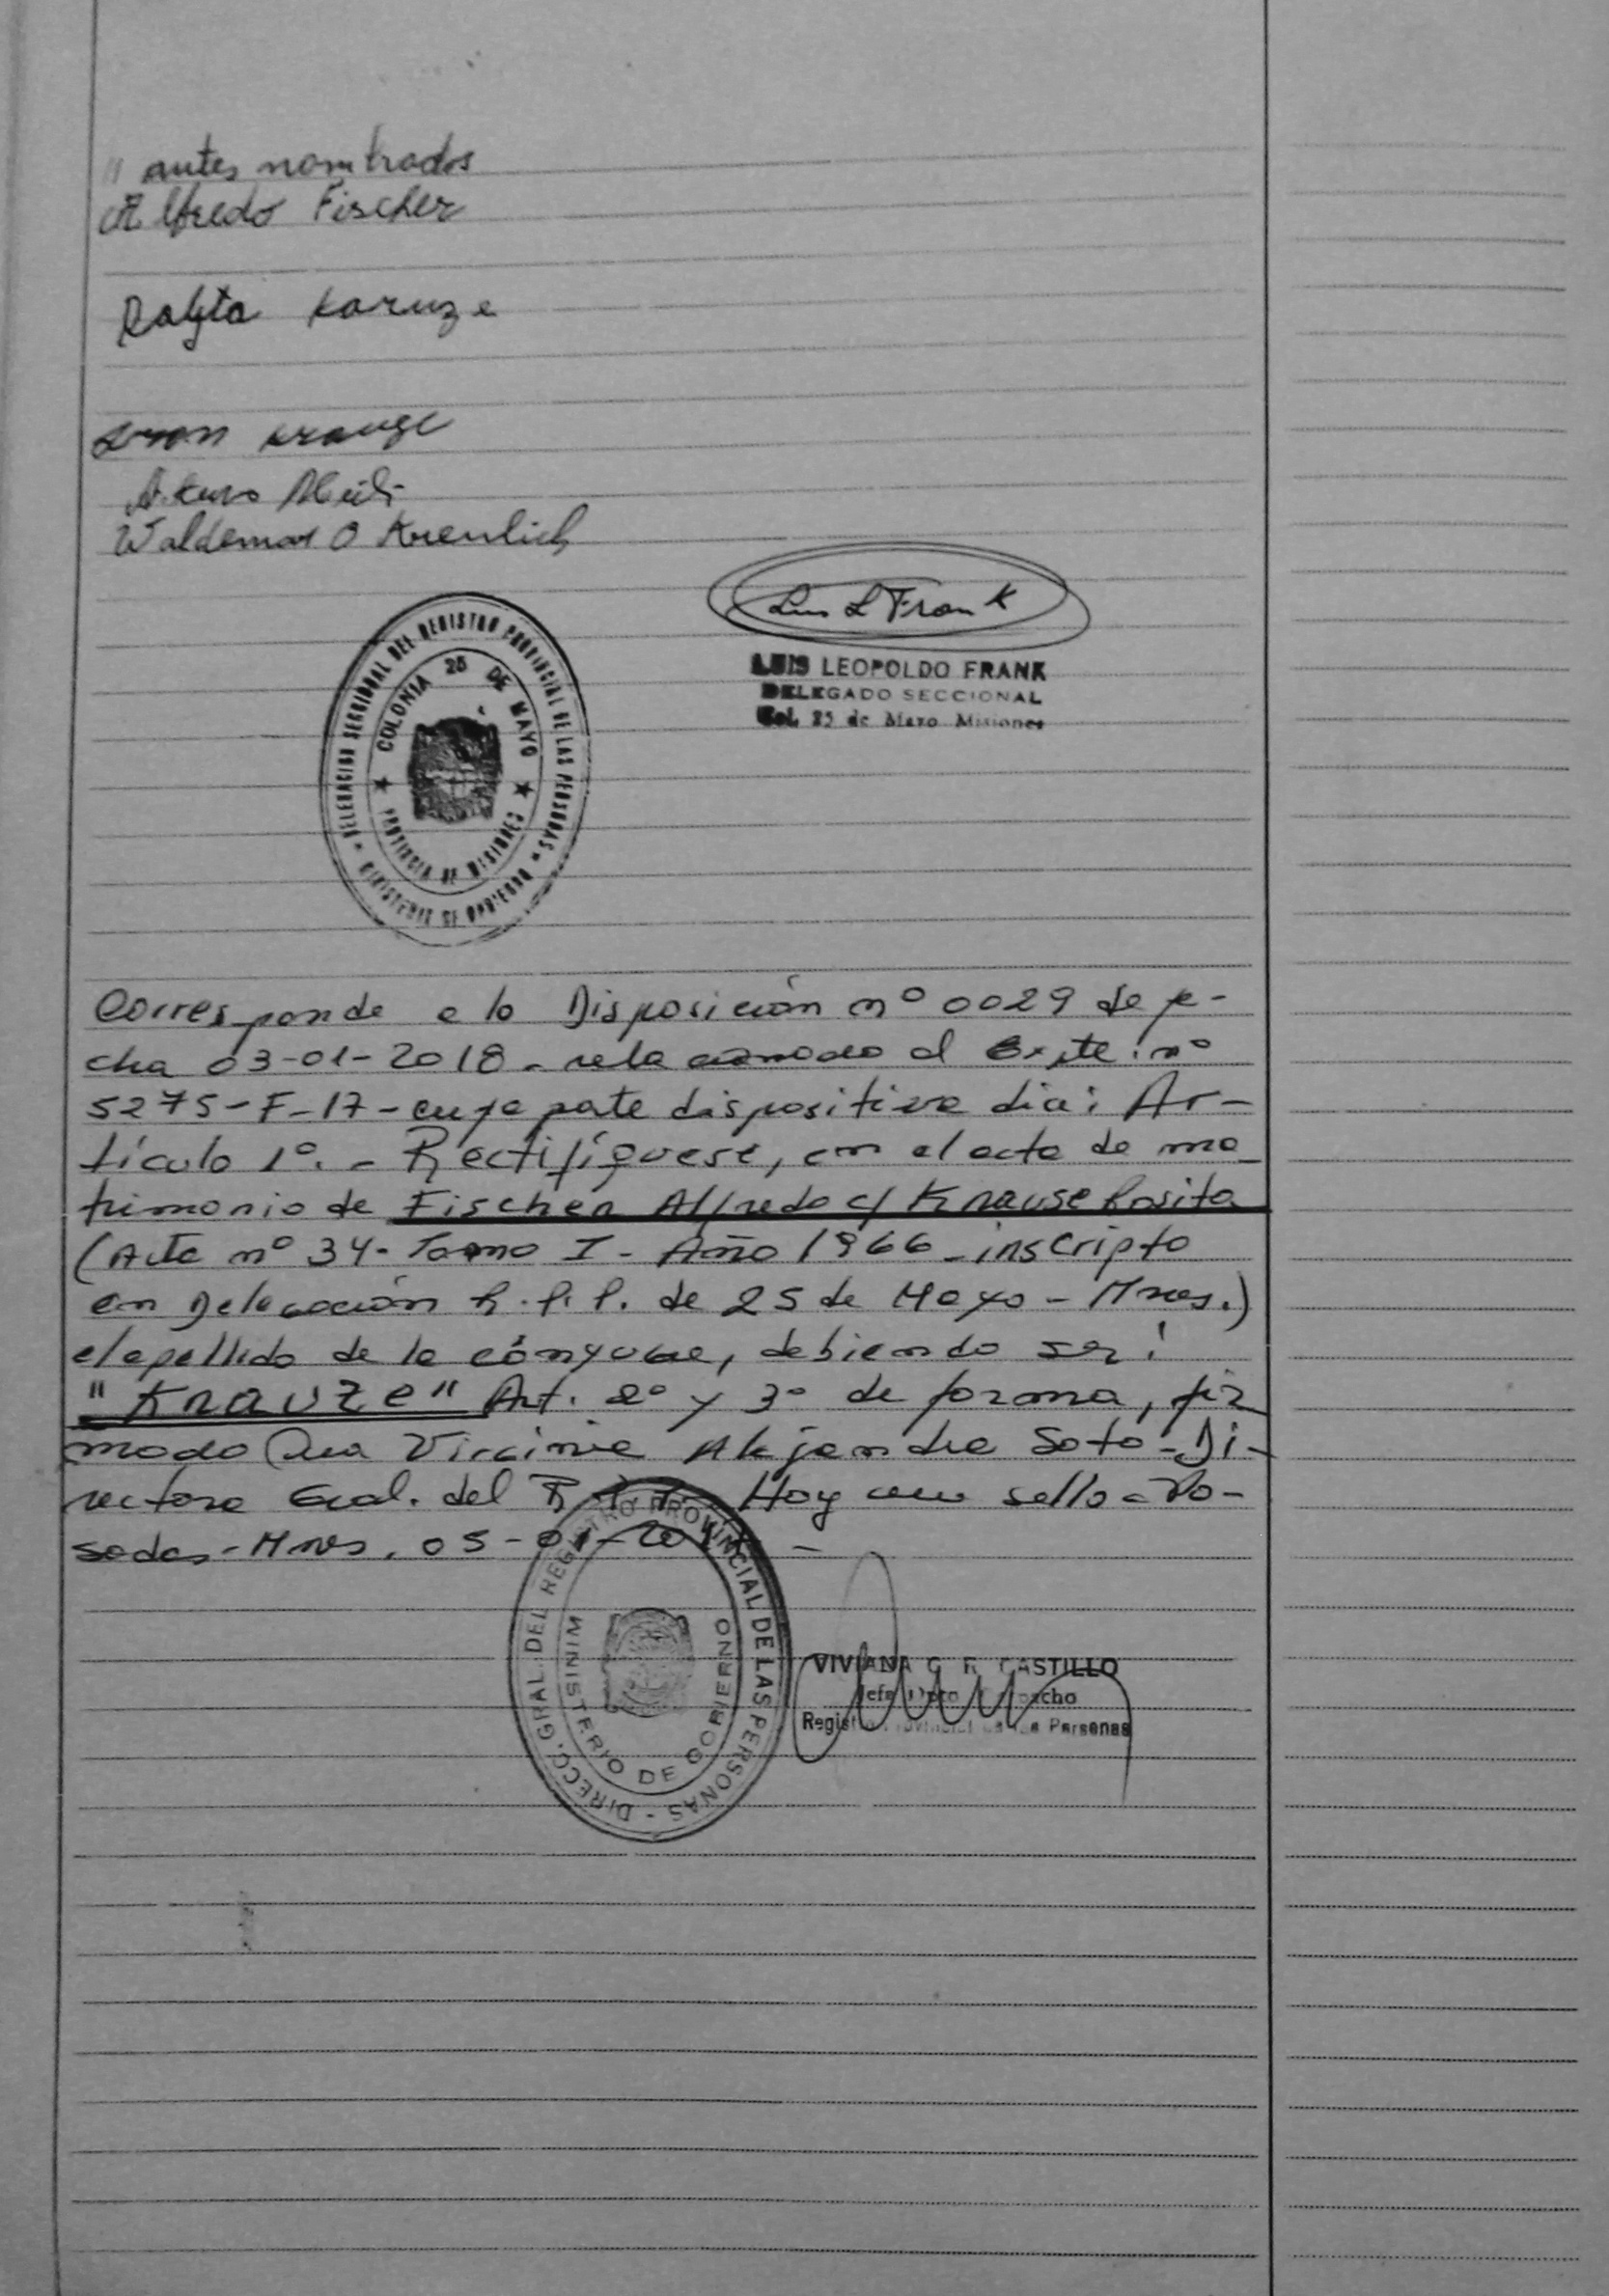 " antes nombrados
Alfredo Fischer
Karuze
Krause
Waldemar O
Luis L Frank
LUIS LEOPOLDO FRANK
DELEGADO SECCIONAL
Col. 25 de Mayo Misiones
DELEGACION SECCIONAL DEL REGISTRO PROVINCIAL DE LAS PERSONAS
MINISTERIO DE GOBIERNO
COLONIA 25 DE MAYO
PROVINCIA DE MISIONES
Corresponde a la Disposición nº 0029 de fe-
cha 03-01-2018 - relacionado al Expte. nº
5275-F-17- cuya parte dispositiva dice: Ar-
tículo 1º. - Rectifíquese, en el acta de ma-
trimonio de Fischer Alfredo c/ Krause Rosita
(Acta nº 34- Tomo I - Año 1966 - inscripto
en Delegación R.P.P. de 25 de Mayo - Mnes.)
el apellido de la cónyuge, debiendo ser:
"Krauze" Art. 2º y 3º de forma, fir
mado Dra Virginia Alejandra Soto - Di-
rectora Gral. del R.P.P. Hay un sello - Po-
sadas - Mnes. 05-01-
DIRECC. GRAL. DEL REGISTRO PROVINCIAL DE LAS PERSONAS -
MINISTERIO DE GOBIERNO
VIVIANA G. R. CASTILLO
Jefa Dpto Despacho
Registro Provincial de las Personas